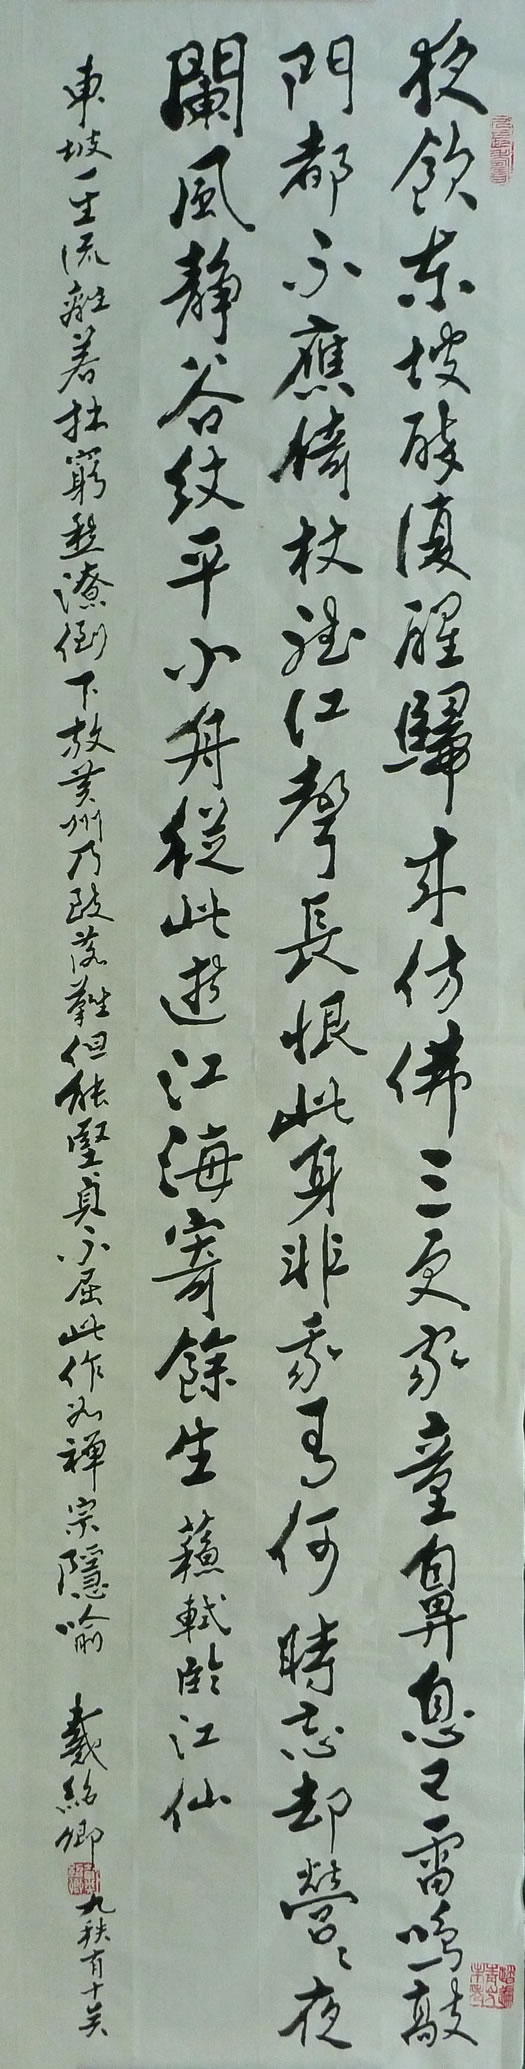 夜飲東坡醉復醒歸來仿佛三更家童鼻息已雷鳴敲
門都不應倚杖聽江聲長恨此身非我有何時忘却營々夜
闌風靜谷紋平小舟從此逝江海寄餘生 蘇軾臨江仙
東坡一生流離若拙窮愁潦倒下放黃州乃致落難但能堅貞不屈此作如禪宗隱喻 戴紹卿 九秩有十